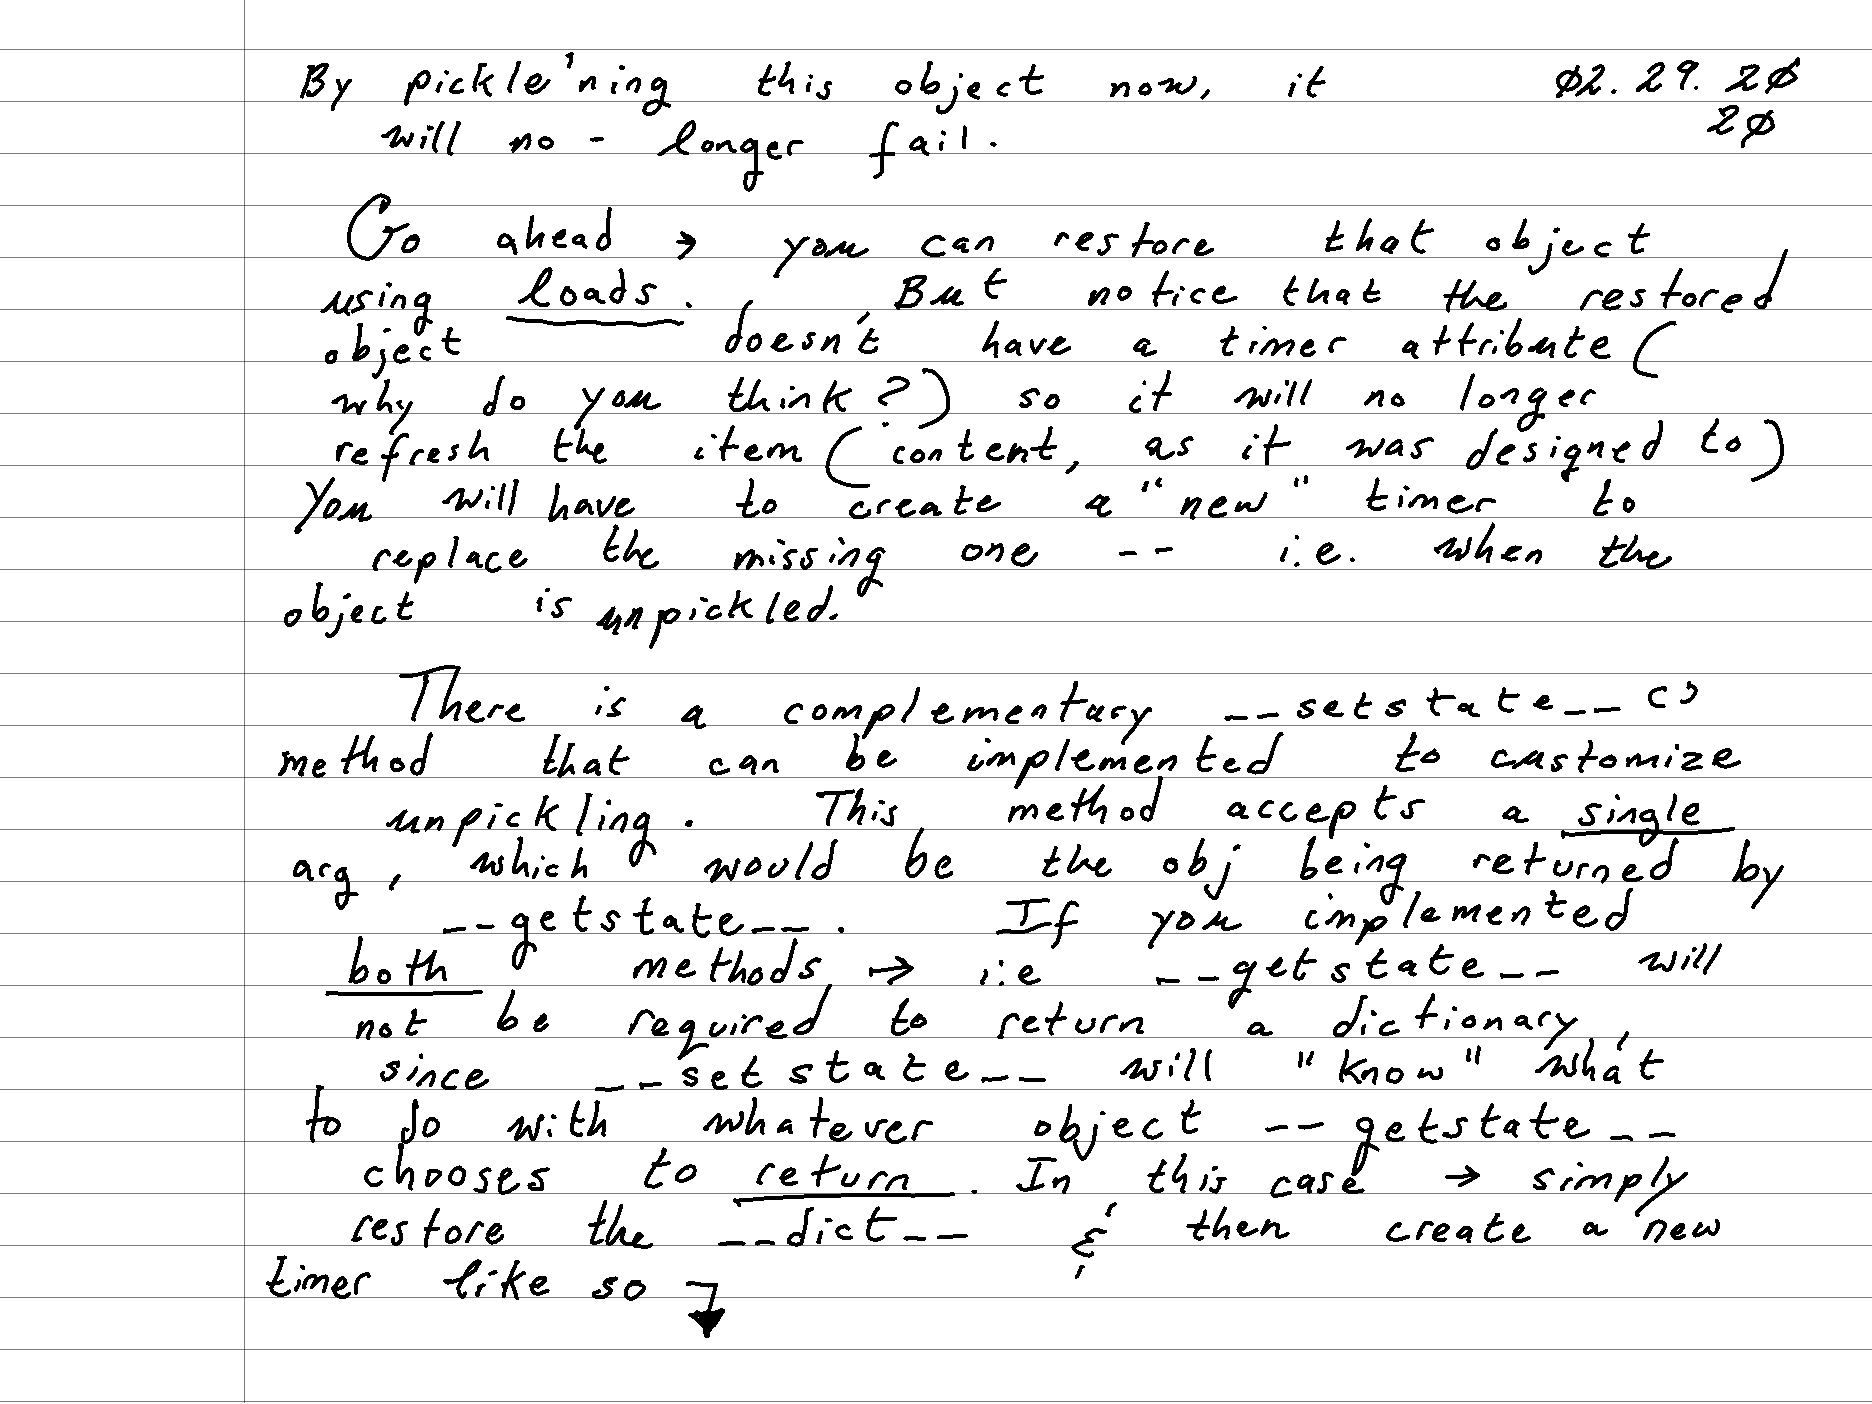 By pickle'ning this object now, it 02.29.20
will no - longer fail. 20
Go ahead → you can restore that object
using loads. But notice that the restored
object doesn't have a timer attribute (
why do you think?) so it will no longer
refresh the item (content, as it was designed to)
You will have to create a "new" timer to
replace the missing one -- i.e. when the
object is unpickled.
There is a complementary __setstate__()
method that can be implemented to customize
unpickling. This method accepts a single
arg, which would be the obj being returned by
__getstate__. If you implemented
both methods → i.e __getstate__ will
not be required to return a dictionary,
since __setstate__ will "know" what
to do with whatever object __getstate__
chooses to return. In this case → simply
restore the __dict__ & then create a new
timer like so